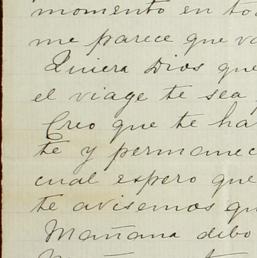 momento en to
me parece que va
Quiera Dios que
el viage te sea
Creo que te ha
te y permanec
cual espero que
te avisemos qu
Mañana debo